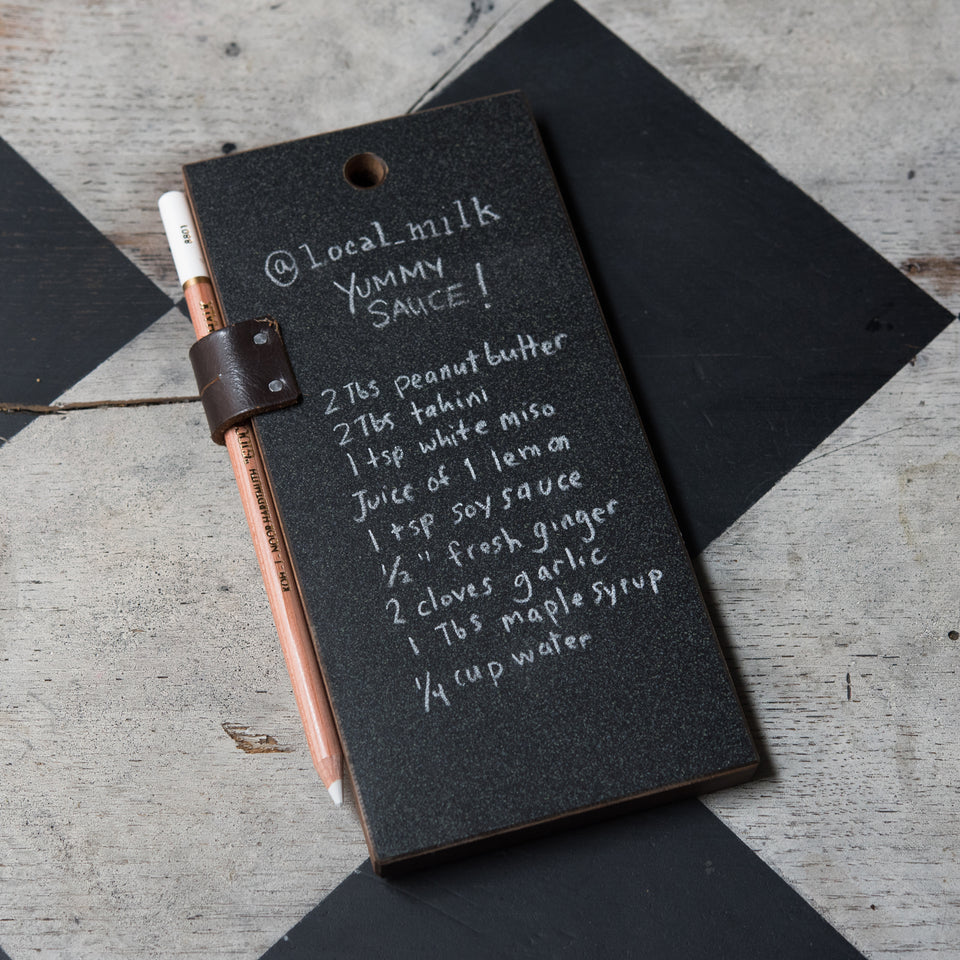 @local_milk
YUMMY
SAUCE!
2 Tbs peanut butter
2 Tbs tahini
1 tsp white miso
Juice of 1 lemon
1 tsp soy sauce
1/2" fresh ginger
2 cloves garlic
1 Tbs maple syrup
1/4 cup water
8801